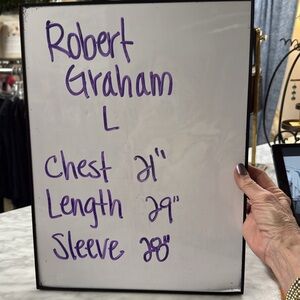 Robert
Graham
L
Chest 21"
Length 29"
Sleeve 28"